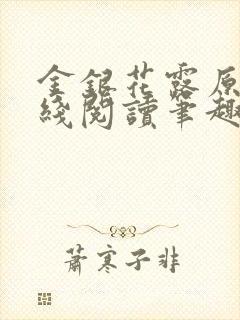 金銀花露原
綫閱讀筆趣
蕭寒子非